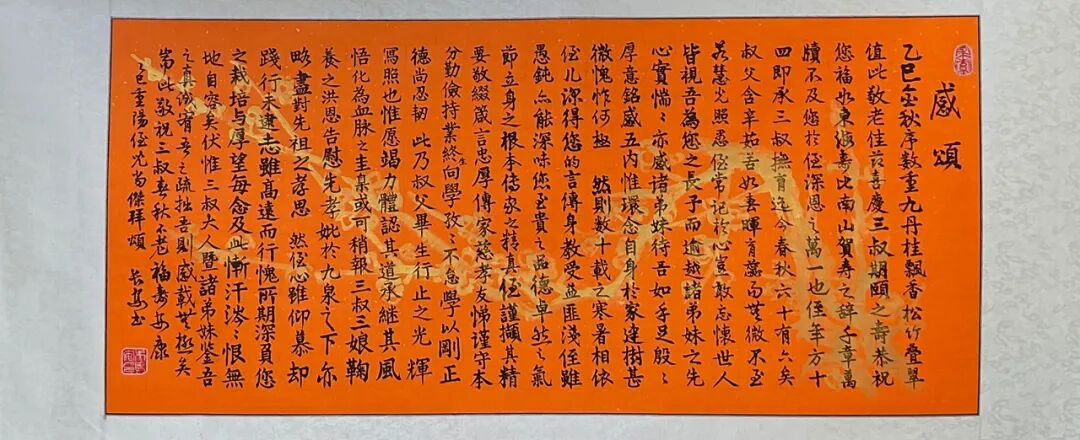 感頌
乙巳金秋序數重九丹桂飄香松竹疊翠
值此敬老佳辰喜慶三叔期頤之壽恭祝
您福如東海壽比南山賀壽之辭千章萬
牘不及您於侄深恩之萬一也侄年方十
四即承三叔撫育迄今春秋六十有六矣
叔父含辛茹苦如春暉育蕊而無微不至
若慧光照愚侄常記於心豈敢忘懷世人
皆視吾為您之長子而逾越諸弟妹之先
心實惴〻亦感諸弟妹待吾如手足殷〻
厚意銘感五内惟環念自身於家建樹甚
微愧怍何極 然則數十載之寒暑相依
侄儿深得您的言傳身教受益匪淺侄雖
愚鈍亦能深味您至貴之品德卓然之氣
節立身之根本傳家之精真侄謹擷其精
要敬綴箴言忠厚傳家慈孝友悌謹守本
分勤儉持業終生向學孜〻不怠學以剛正
德尚忍韌 此乃叔父畢生行止之光輝
寫照也惟愿竭力體認其道承継其風
悟化為血脉之圭臬或可稍報三叔三娘鞠
養之洪恩告慰先考妣於九泉之下亦
略盡對先祖之孝思 然侄心雖仰慕却
踐行未逮志雖高遠而行愧所期深負您
之栽培与厚望每念及此慚汗涔〻恨無
地自容矣伏惟三叔大人暨諸弟妹鑒吾
之真誠宥吾之疏拙吾則感載無極矣
耑此敬祝三叔春秋不老福壽安康
乙巳重陽侄 尚傑拜頌 長安書